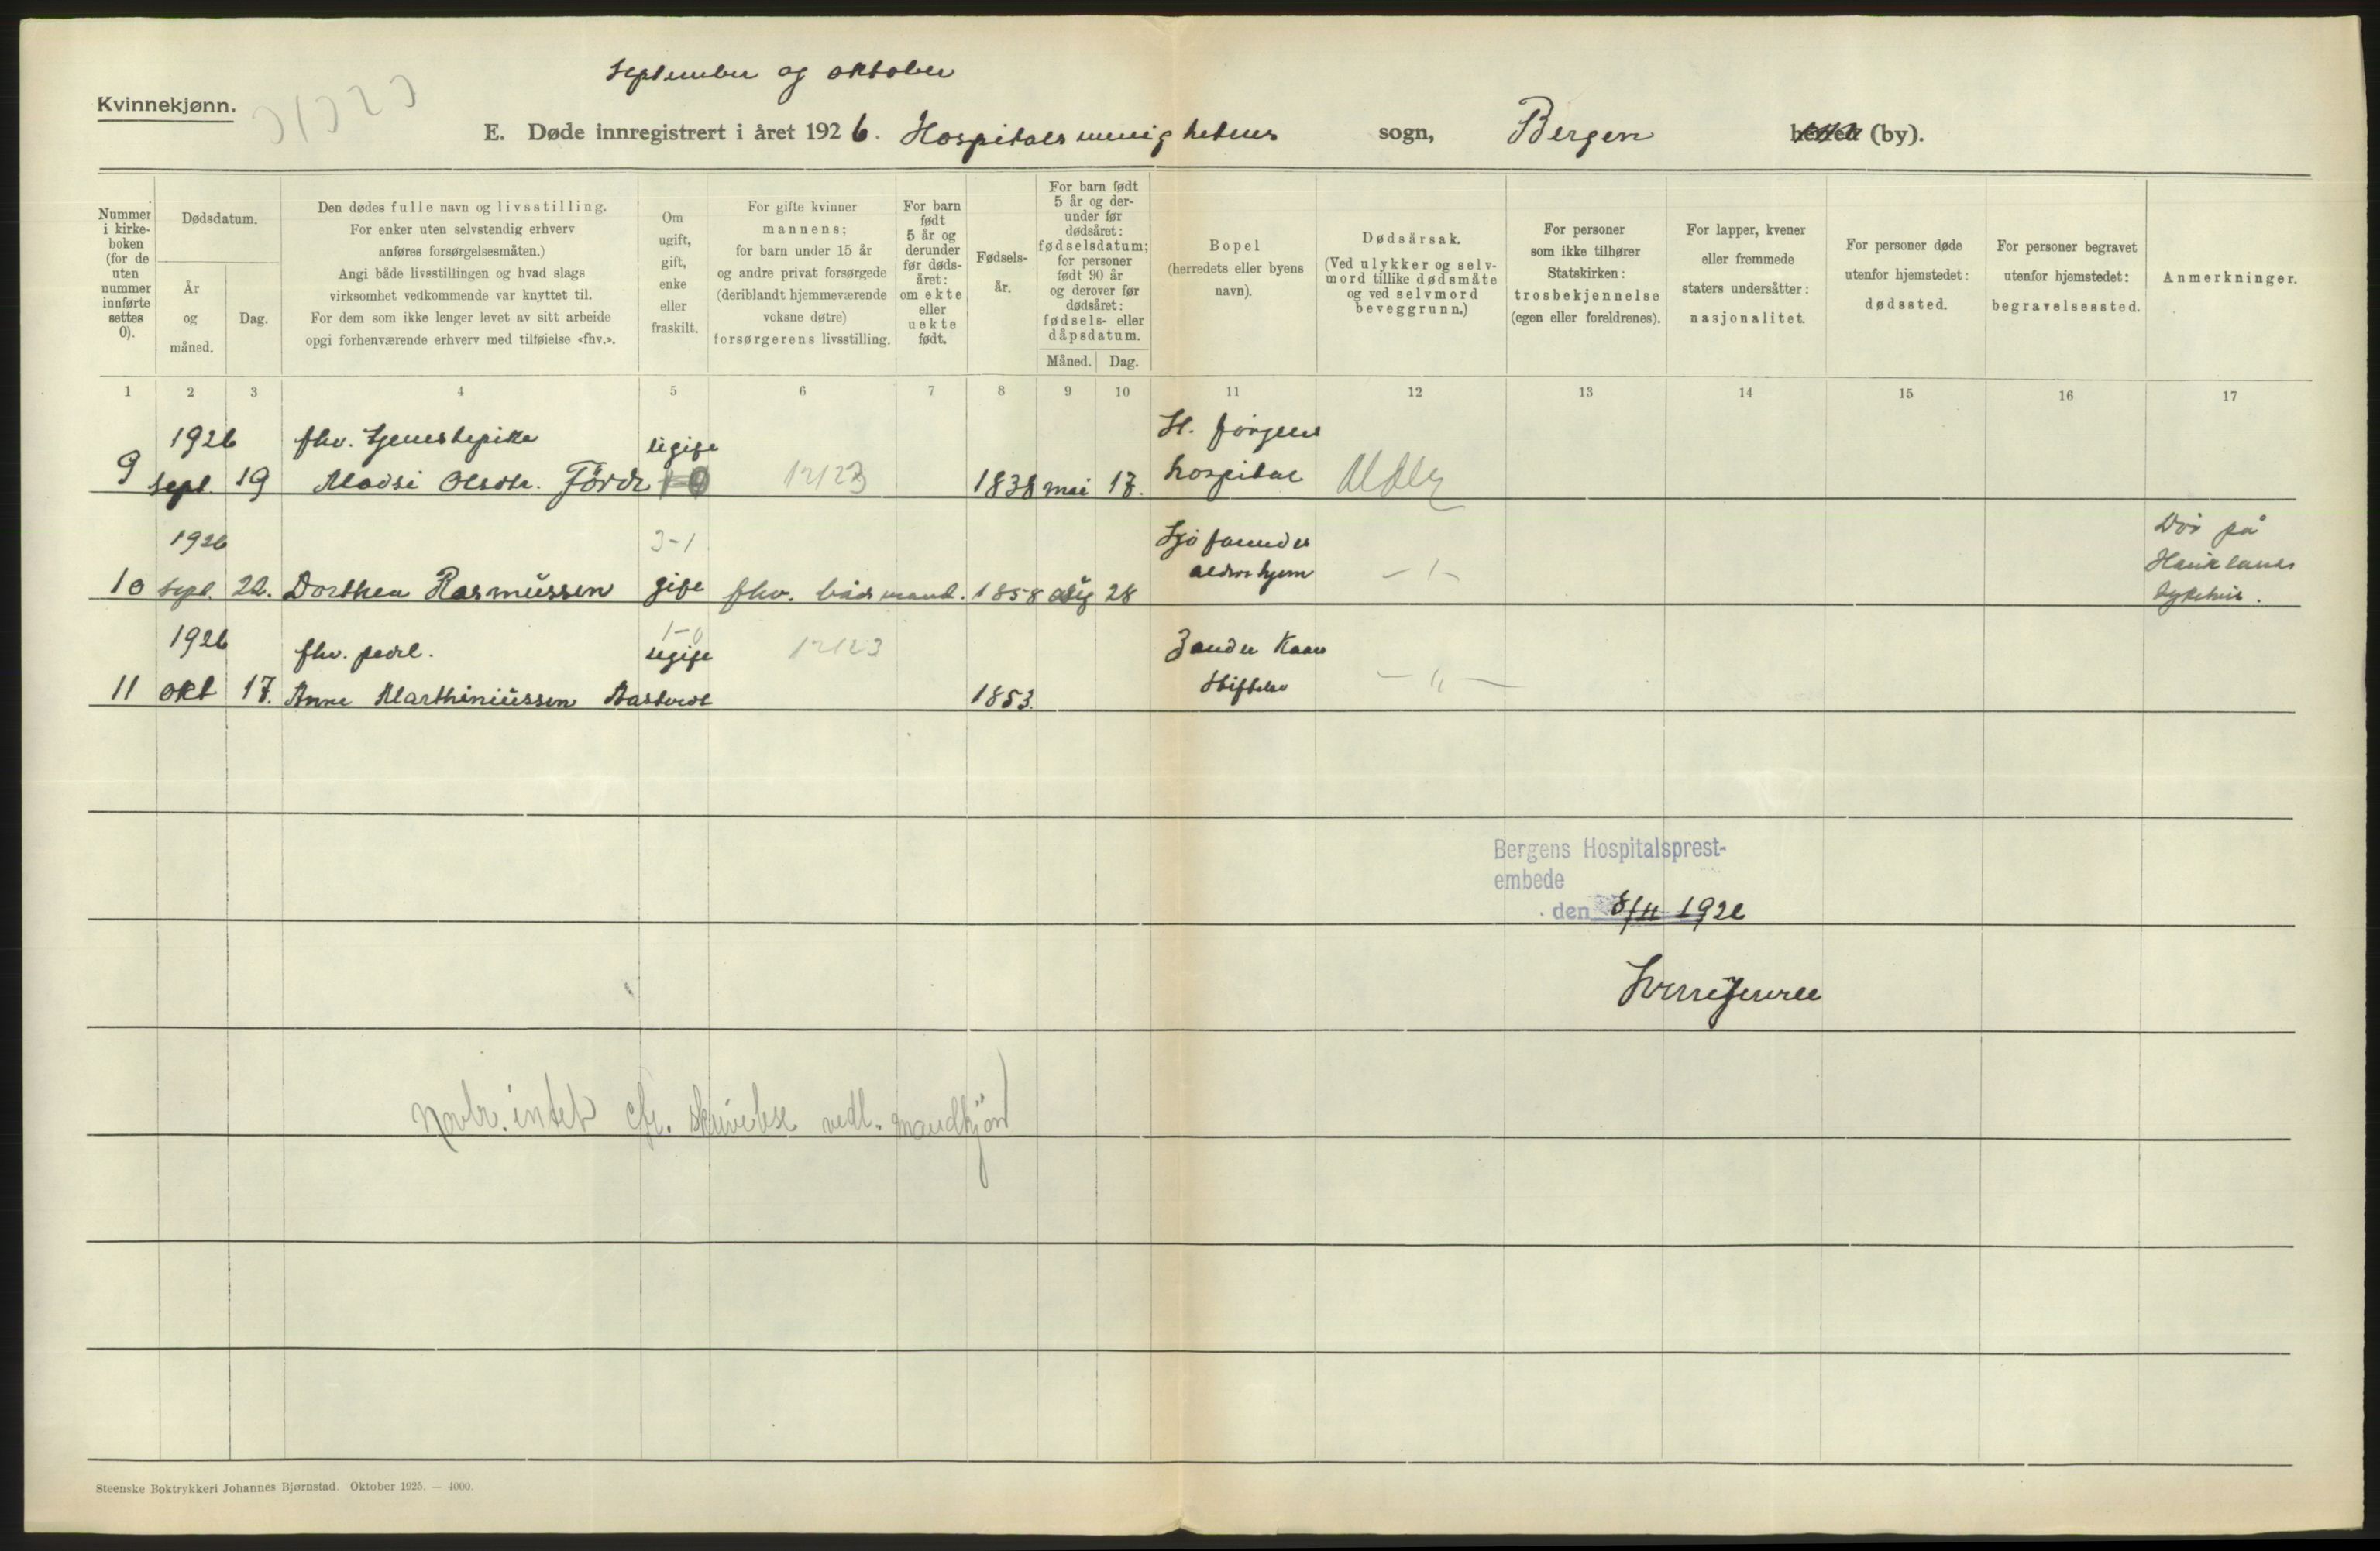 september og oktober
Kvinnekjønn.
E. Døde innregistrert i året 1926. Hospitalsmenighetens sogn, Bergen herred (by).
Nummer i kirke-boken (for de uten nummer innførte settes 0).
Dødsdatum.
År og måned.
Dag.
Den dødes fulle navn og livsstilling.
For enker uten selvstendig erhverv
anføres forsørgelsesmåten.)
Angi både livsstillingen og hvad slags
virksomhet vedkommende var knyttet til.
For dem som ikke lenger levet av sitt arbeide
opgi forhenværende erhverv med tilføielse «fhv.».
Om ugift, gift, enke eller fraskilt.
For gifte kvinner
mannens;
for barn under 15 år
og andre privat forsørgede
(deriblandt hjemmeværende
voksne døtre)
forsørgerens livsstilling.
For barn født 5 år og derunder før døds-året: om ekte eller uekte født.
Fødsels-år.
For barn født
5 år og der-
under før
dødsåret:
fødselsdatum;
for personer
født 90 år
og derover før
dødsåret:
fødsels- eller
dåpsdatum.
Måned. Dag.
Bopel
(herredets eller byens
navn).
Dødsårsak.
(Ved ulykker og selv-
mord tillike dødsmåte
og ved selvmord
beveggrunn.)
For personer
som ikke tilhører
Statskirken:
trosbekjennelse
(egen eller foreldrenes).
For lapper, kvener
eller fremmede
staters undersåtter:
nasjonalitet.
For personer døde
utenfor hjemstedet:
dødssted.
For personer begravet
utenfor hjemstedet:
begravelsessted.
Anmerkninger.
1 2 3 4 5 6 7 8 9 10 11 12 13 14 15 16 17
1926 fhv. tjenestepike ugift St. Jørgens
9 sept. 19 Madsi Olsdtr. Förde 12123 1838 mai 17. hospital
1926 3-1 Sjøfarendes Död på
aldershjem Haukelands
10 sept. 22. Dorthea Rasmussen gift fhv. båtsmand. 1858 aug 28 sykehus.
1926 fhv. pedel. 1-0 ugift 12123 Zander Kaaes
11 okt 17. Anne Marthiniussen 1853. Stiftelse — " —
Bergens Hospitalsprest-
embede
den 8/11 1926
Novbr. intet cfr. skrivelse vedl. mandkjön
Steenske Boktrykkeri Johannes Bjørnstad. Oktober 1925. — 4000.